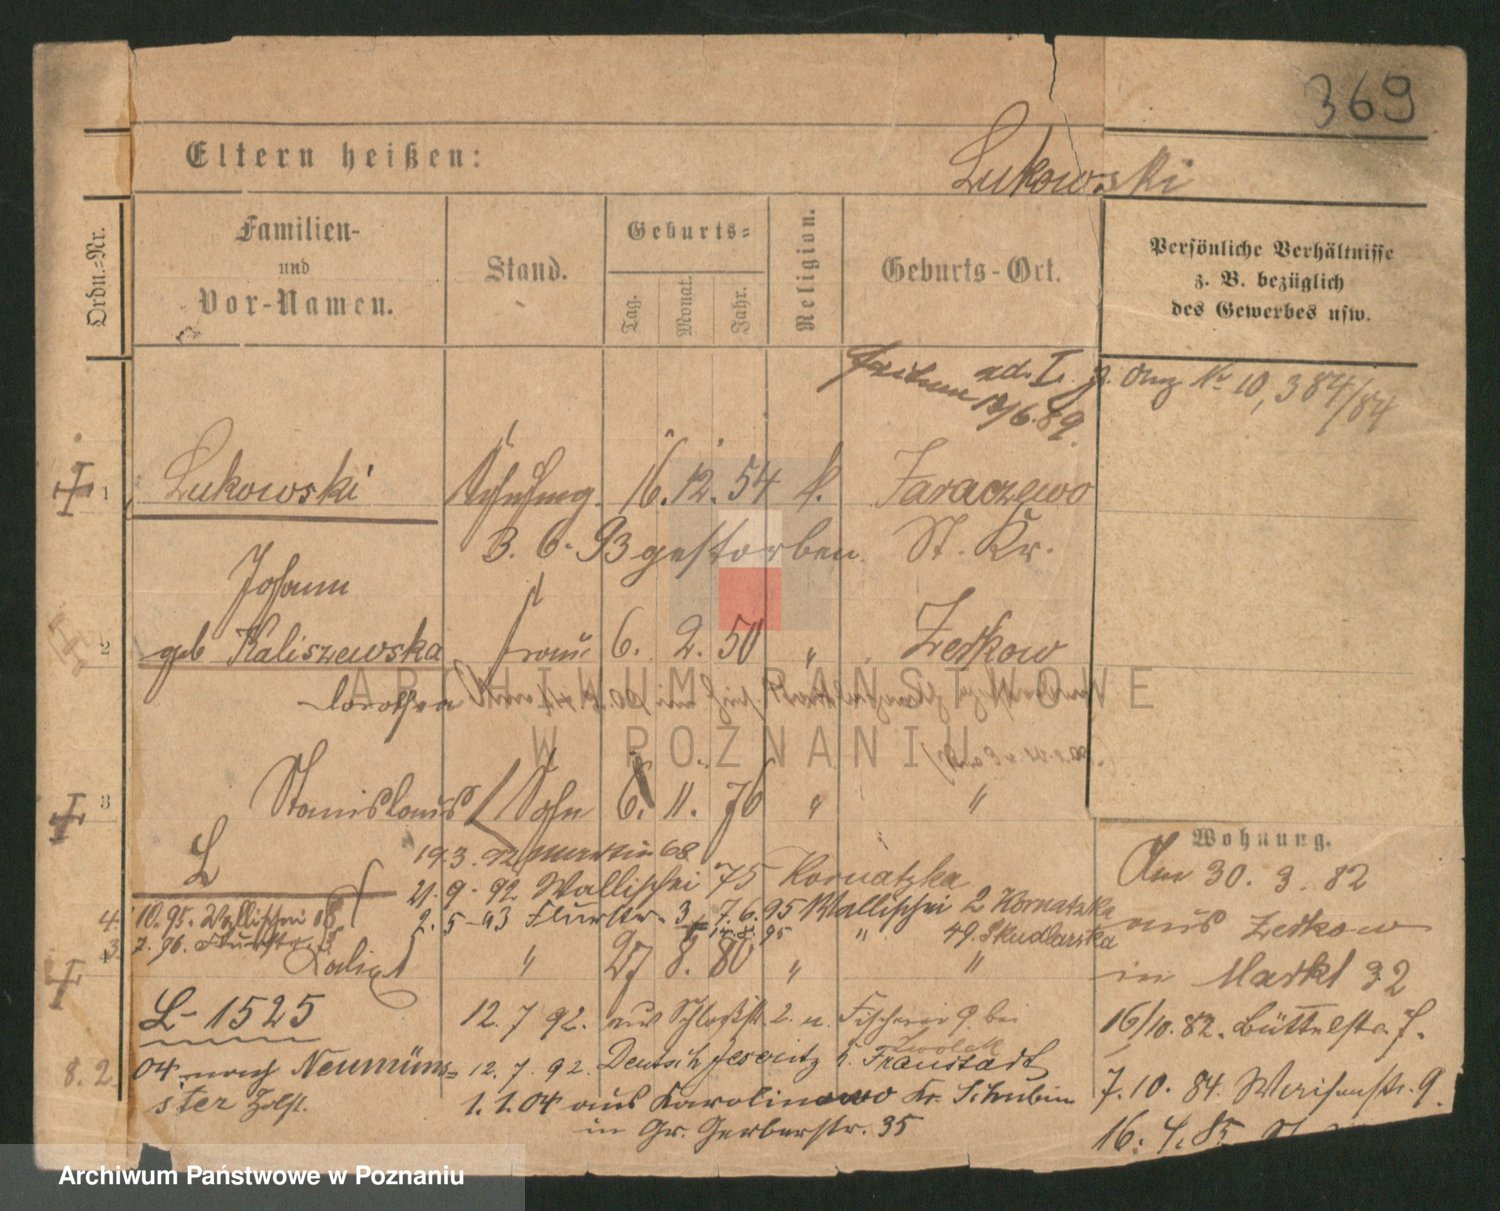 369
Eltern heißen:
Lukowski
Ordn.-Nr.
Familien-
und
Vor-Namen.
Stand.
Geburts-
Tag.
Monat.
Jahr.
Religion.
Geburts-Ort.
Persönliche Verhältnisse
z. B. bezüglich
des Gewerbes usw.
ad. I. J. No 10,384/84
12/6.89.
1 Lukowski 16. 12. 54 k. Jaraczewo
3. 6. 93 gestorben. St. Kr.
Johann
2 geb Kaliszewska Frau 6. 2. 50 " Zerkow
Dorothea
3 Stanislaus Sohn 6. 11. 76 " "
L
19.3.92 Martin 68
21.9.92 Wallischei 75 Kornatzka
4. 10.95. Wallischei 18 2.5-93 Flurstr. 3 7.6.95 Wallischei 2 Kornatzka
3. 7.96. Flurstr. 13 95 " 49. Skudlarska
4 " 27 8. 80 " "
L-1525
12. 7 92. aus Schloßstr. 2. n. Fischerei 9. bei
8.2. 04 nach Neumüns= 12. 7. 92. Deutsch Jeseritz k. Fraustadt
ster Holst. 1.1.04 aus Karolinowo Kr. Schubin
in Gr. Gerberstr. 35
Wohnung.
Am 30. 3. 82
aus Zerkow
in Markt 92
16/10.82. Büttelstr. 7.
7.10. 84. 9.
16. 4. 85
ARCHIWUM PAŃSTWOWE
W POZNANIU
Archiwum Państwowe w Poznaniu